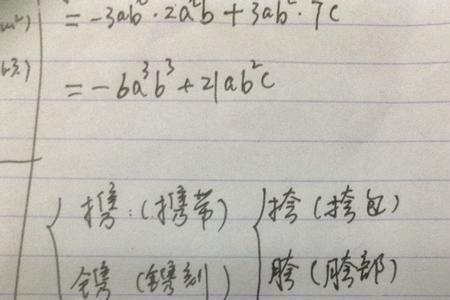 m²)
= -3ab²·2a²b + 3ab²·7c
b³)
= -6a³b³ + 21ab²c
携:(携带) 挎(挎包)
镌(镌刻) 胯(胯部)